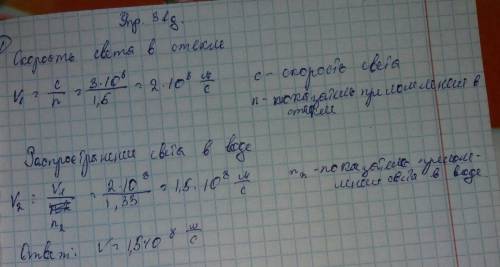 Упр. 31д.
Скорость света в стекле
V₁ = c/n = 3·10⁸/1,5 = 2·10⁸ м/с
c – скорость света
n – показатель преломления в стекле
Распространение света в воде
V₂ = V₁/n₂ = 2·10⁸/1,33 = 1,5·10⁸ м/с
показатель преломления света в воде
Ответ: V = 1,5·10⁸ м/с